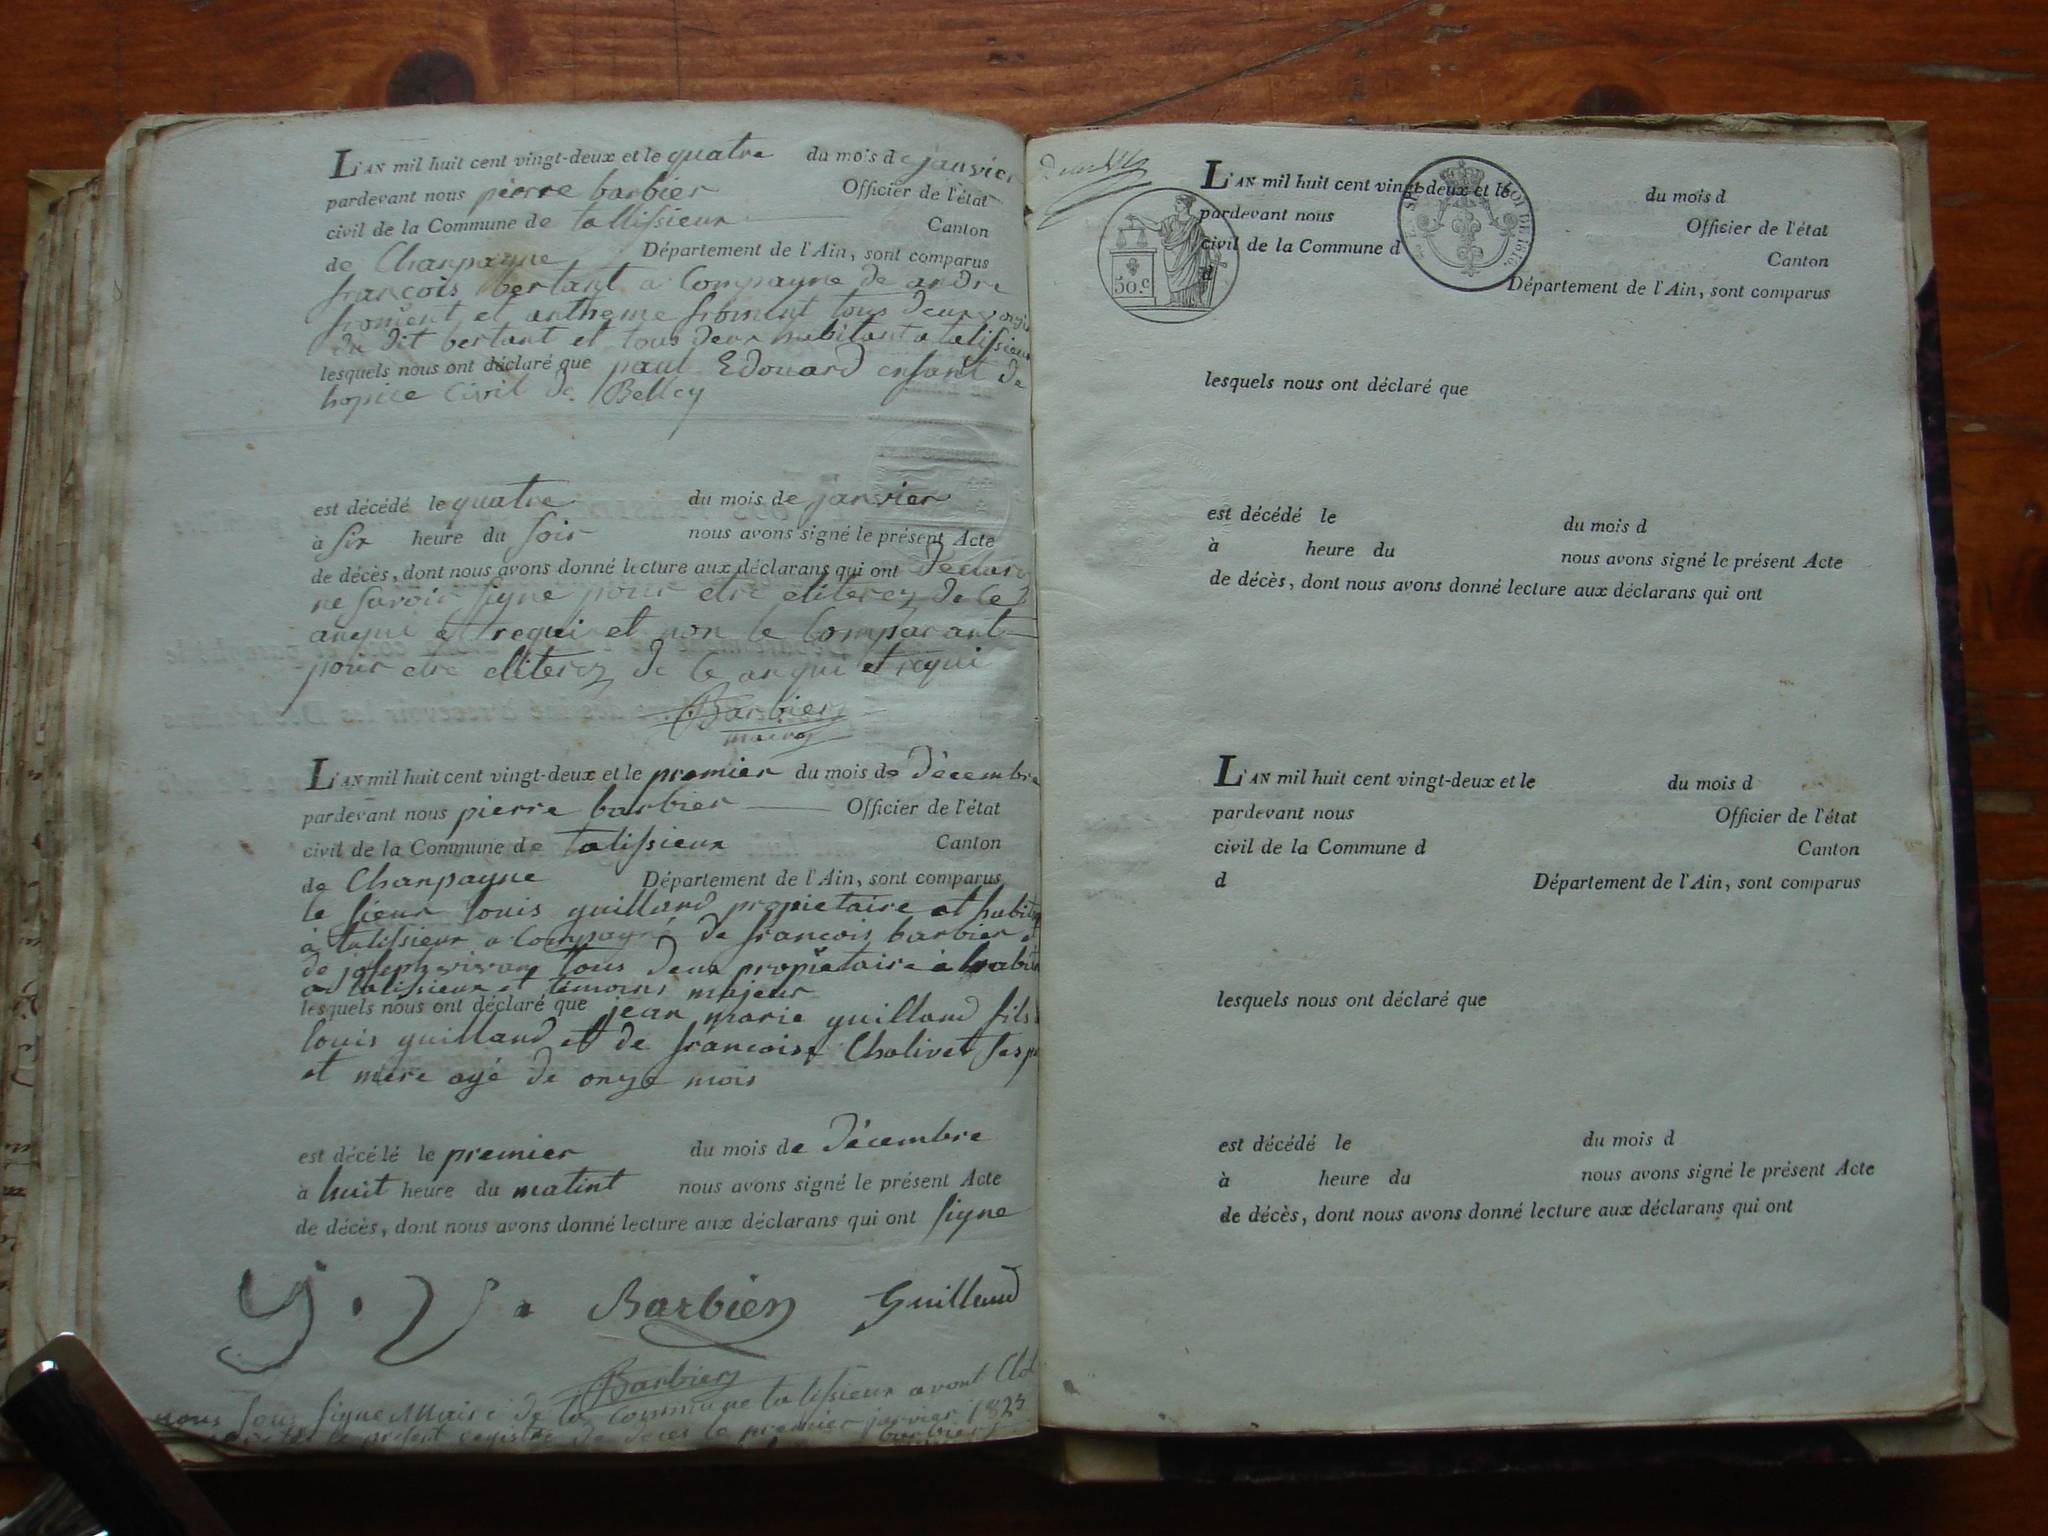 L'AN mil huit cent vingt-deux et le quatre du mois de janvier
pardevant nous pierre barbier Officier de l'état
civil de la Commune de tallissieux Canton
de Chanpagne Département de l'Ain, sont comparus
françois bertant a Compagne de andre
froment et antheme froment tous deux
du dit bertant et tous deux habitant a talissieux
lesquels nous ont déclaré que paul Edouard enfant de
hopice Civil de Belley
est décédé le quatre du mois de janvier
à six heure du soir nous avons signé le présent Acte
de décès, dont nous avons donné lecture aux déclarans qui ont
ne savoir signe pour etre eliterez de ce
anqui et requi et non le Comparant
pour etre eliterez de ce anqui et requi
Barbier
maire
L'AN mil huit cent vingt-deux et le premier du mois de décembre
pardevant nous pierre barbier Officier de l'état
civil de la Commune de talissieux Canton
de Chanpagne Département de l'Ain, sont comparus
le sieur louis guilland propietaire et
à talissieux a Compagne de françois barbier
de joseph tous deux propietaire
a talissieux et temoins majeur
lesquels nous ont déclaré que jean marie guilland fils
louis guilland et de francoise Cholivet
et mere agé de onze mois
est décédé le premier du mois de décembre
à huit heure du matint nous avons signé le présent Acte
de décès, dont nous avons donné lecture aux déclarans qui ont signe
J. V. Barbier Guilland
Barbier
nous sous signe Maire de la Commune talissieux avont
le present registre de deces le premier janvier 1823
barbier
50.C
ROI DE 1816.
L'AN mil huit cent vingt-deux et le du mois d
pardevant nous Officier de l'état
civil de la Commune d Canton
d Département de l'Ain, sont comparus
lesquels nous ont déclaré que
est décédé le du mois d
à heure du nous avons signé le présent Acte
de décès, dont nous avons donné lecture aux déclarans qui ont
L'AN mil huit cent vingt-deux et le du mois d
pardevant nous Officier de l'état
civil de la Commune d Canton
d Département de l'Ain, sont comparus
lesquels nous ont déclaré que
est décédé le du mois d
à heure du nous avons signé le présent Acte
de décès, dont nous avons donné lecture aux déclarans qui ont